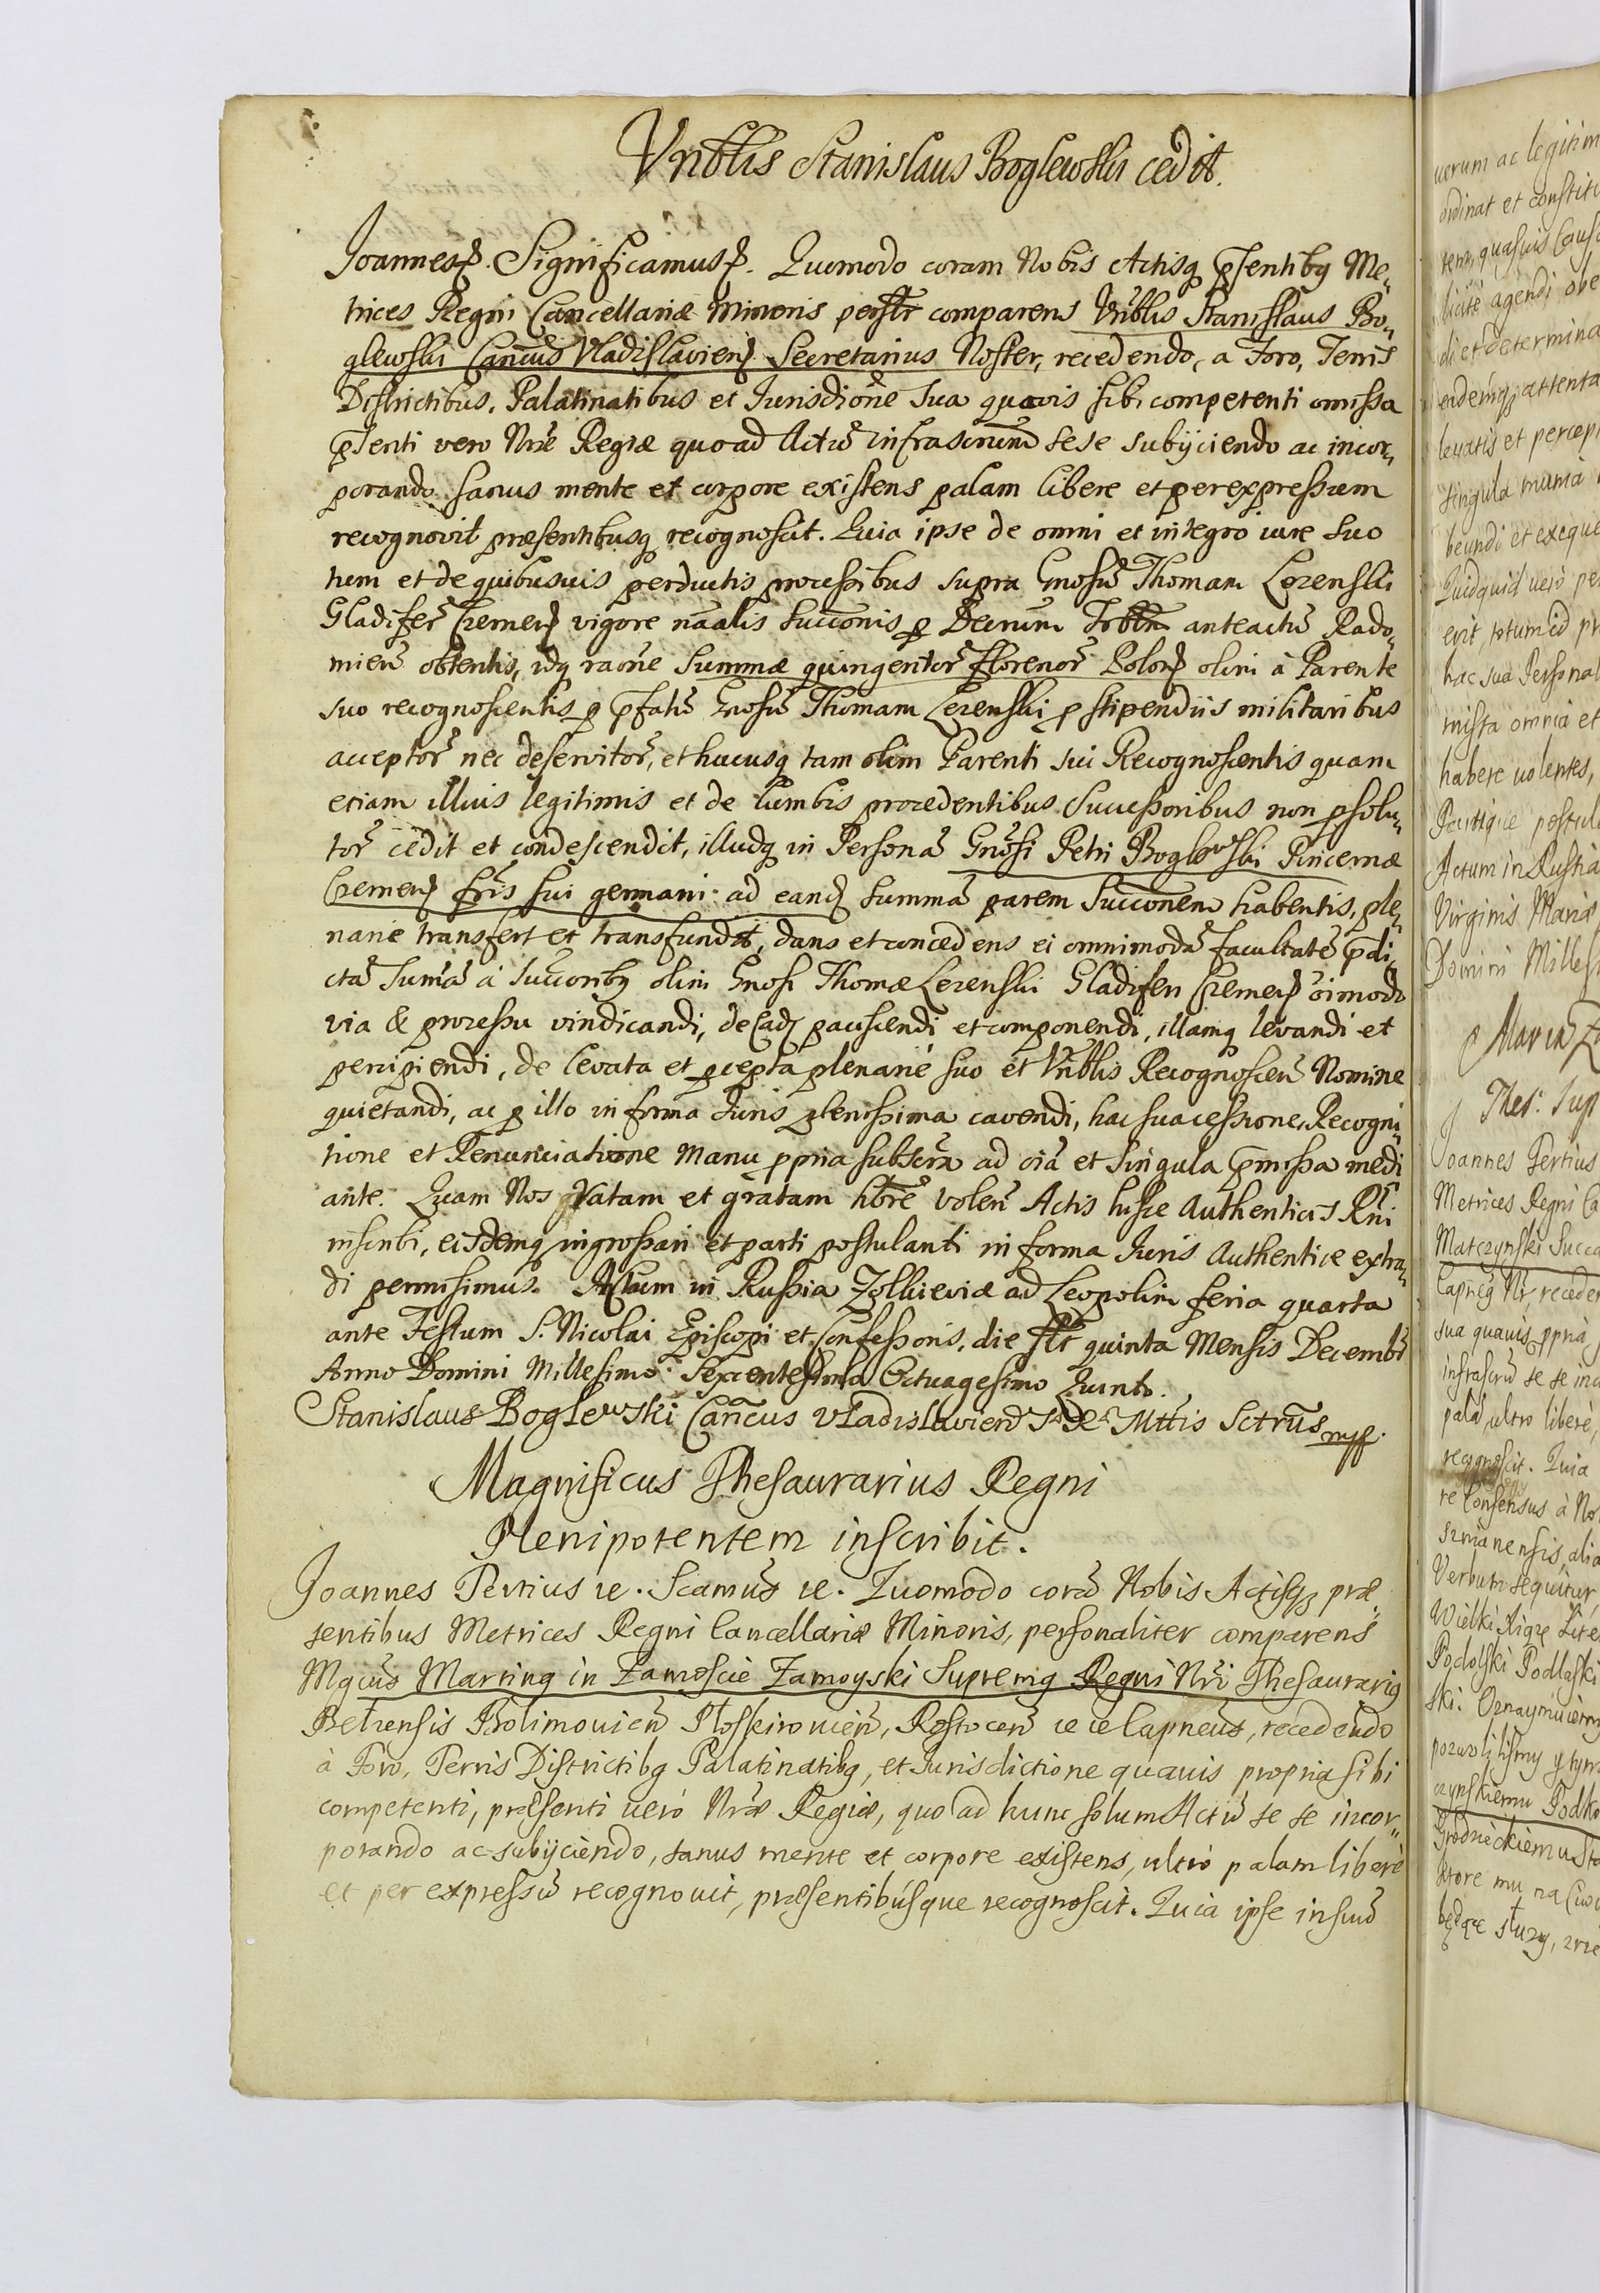 Vnblis Stanislaus Boglewski cedit.
Joannes etc. Significamus etc. Quomodo coram Nobis Actisq pñsentibq Me„
trices Regni Cancellariæ Minoris persñlr comparens Vnblis Stanislaus Bo„
glewski Cancũs Vladislavien Secretarius Noster, recedendo, a Foro, Terris
Districtibus, Palatinatibus et Jurisdiõne sua quavis sibi competenti omissa
pñsenti vero Nræ Regiæ quoad Actũ infrascrum sese subijciendo ac incor„
porando sanus mente et corpore existens palam libere et per expressum
recognovit præsentibusq recognoscit. Quia ipse de omni et integro iure suo
tum et de quibusuis perductis processibus supra Gnosũ Thomam Lezenski
Gladiferũ Czernen vigore naãlis succonis p Decrum Trbłm anteactũ Rado„
mien obtentis, idq raõne Summæ quingentor florenor Polon olim à Parente
suo recognoscentis p pfatũ Gnosũ Thomam Lezenski p stipendiis militaribus
acceptor nec deservitor, et hucusq tam olim Parenti sui Recognoscentis quam
etiam illius legitimis et de lumbis procedentibus Successoribus non psolu„
tor cedit et condescendit, illudq in Personã Gnosi Petri Boglewski Pincernæ
Czernen fris sui germani ad eand summã parem Succonem habentis, ple„
narie transfert et transfundit, dans et concedens ei omnimodã facultatẽ pdi„
ctã sumã à succoribq olim Gnosi Thomæ Lezenski Gladiferi Czernen oimodo
via & processu vindicandi, de ead paciscendi et componendi, illamq levandi et
percipiendi, de levata et pcepta plenarié suo et Vnblis Recognoscen Nomine
quietandi, ac p illo in forma Juris plenissima cavendi, hac sua cessione, Recogni„
tione et Renunciatione manu ppria subscra ad oiã et singula pmissa medi
ante. Quam Nos ratam et gratam hbre volen Actis hisce Authenticis Rñi
inscribi, eisdemq ingrossari et parti postulanti in forma Juris Authentice extra„
di permisimus. Actum in Russia Zolkieviæ ad Leopolim feria quarta
ante Festum S. Nicolai Episcopi et Confessoris, die slt quinta Mensis Decembr
Anno Domini Millesimo Sexcentesimo Octuagesimo Quinto.
Stanislaus Boglewski Cancus Vladislavien Mttis Sctrius mpp.
Magnificus Thesaurarius Regni
Plenipotentem inscribit.
Joannes Tertius etc. Scamus etc. Quomodo corã Nobis Actisq præ„
sentibus Metrices Regni Cancellariæ Minoris, personaliter comparens
Mgcus Martinq in Zamoscie Zamoyski Supremq Regni Nri Thesaurariq
Belzensis Bolimouien Ploskirouien, Rostocen etc etc Capneus, recedendo
à Foro, Terris Districtibq Palatinatibq, et Jurisdictione quauis propria sibi
competenti, præsenti ueró Nræ Regiæ, quo ad hunc solum Actũ se se incor„
porando ac subijciendo, sanus mente et corpore existens, ultró palam liberè
et per expressũ recognouit, præsentibúsque recognoscit. Quia ipse in suũ
uerum ac legitim
ordinat et constitu
di et determina
leuatis et percepi
singula munia
beundi et exeque
Quidquid ueró pe
erit, totum id pr
hac sua Personal
missa omnia et
habere uolentes,
Partique postul
Actum in Russia
Virginis Mariæ
Domini Milles
Joannes Tertius
Metrices Regni Ca
Matczynski Succa
Capneq Nr, receden
sua quauis ppria
infrascrũ se se inc
palã, ultro liberè,
recognoscit. Quia
re Consensus à No
Verbum sequitur
Podolski Podlaski
ski. Oznaymuiemy
pozwolilismy y tym
czynskiemu Podko
Grodnickiemu Sta
ktore mu na